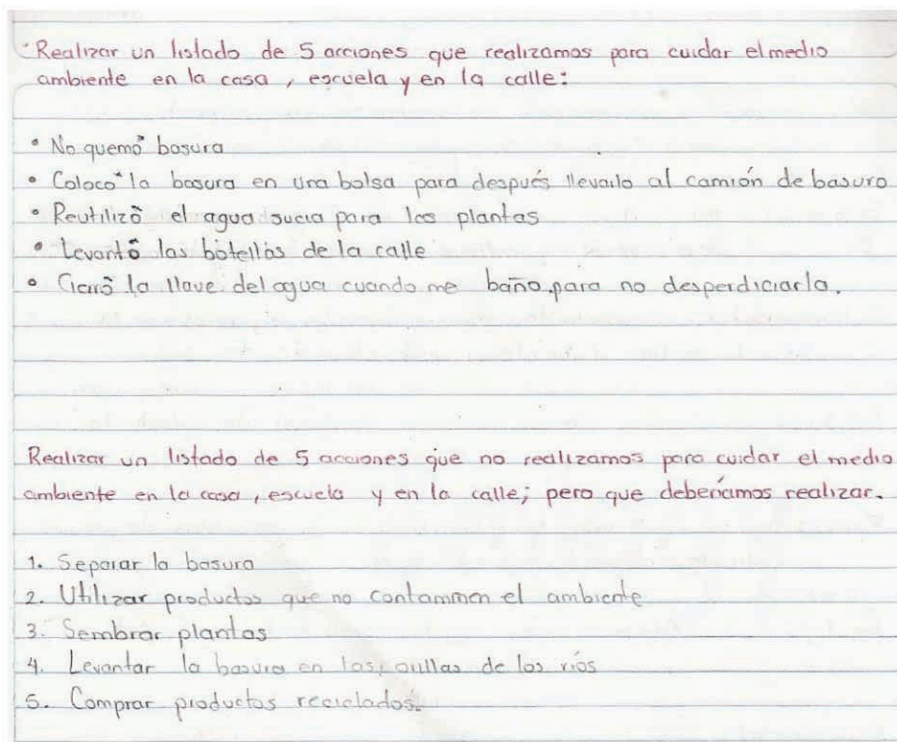 Realizar un listado de 5 acciones que realizamos para cuidar el medio
ambiente en la casa, escuela y en la calle:
• No quemó basura
• Colocó la basura en una bolsa para después llevarlo al camión de basura
• Reutilizó el agua sucia para las plantas
• Levantó las botellas de la calle
• Cierró la llave del agua cuando me baño, para no desperdiciarla.
Realizar un listado de 5 acciones que no realizamos para cuidar el medio
ambiente en la casa, escuela y en la calle; pero que deberíamos realizar.
1. Separar la basura
2. Utilizar productos que no contaminen el ambiente
3. Sembrar plantas
4. Levantar la basura en las orillas de los ríos
5. Comprar productos reciclados.